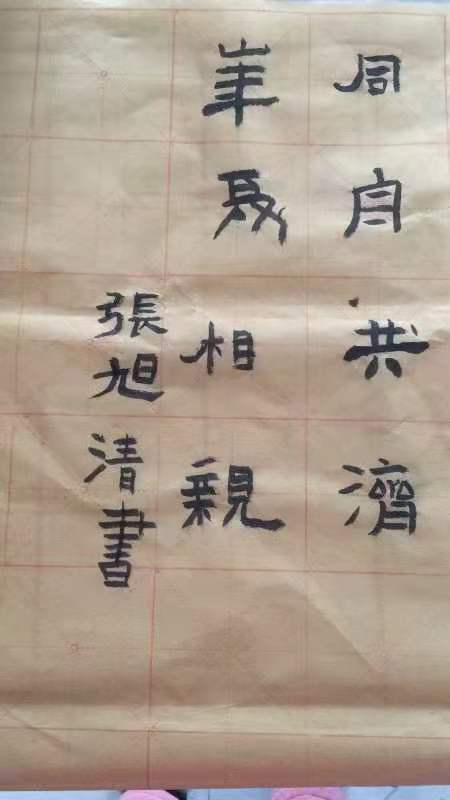 同舟共濟
華夏相親
張旭清書